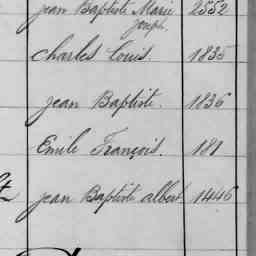 jean Baptiste Marie 2552
Joseph.
Charles Louis 1835
jean Baptiste. 1836
Emile François. 181
jean Baptiste albert 1446